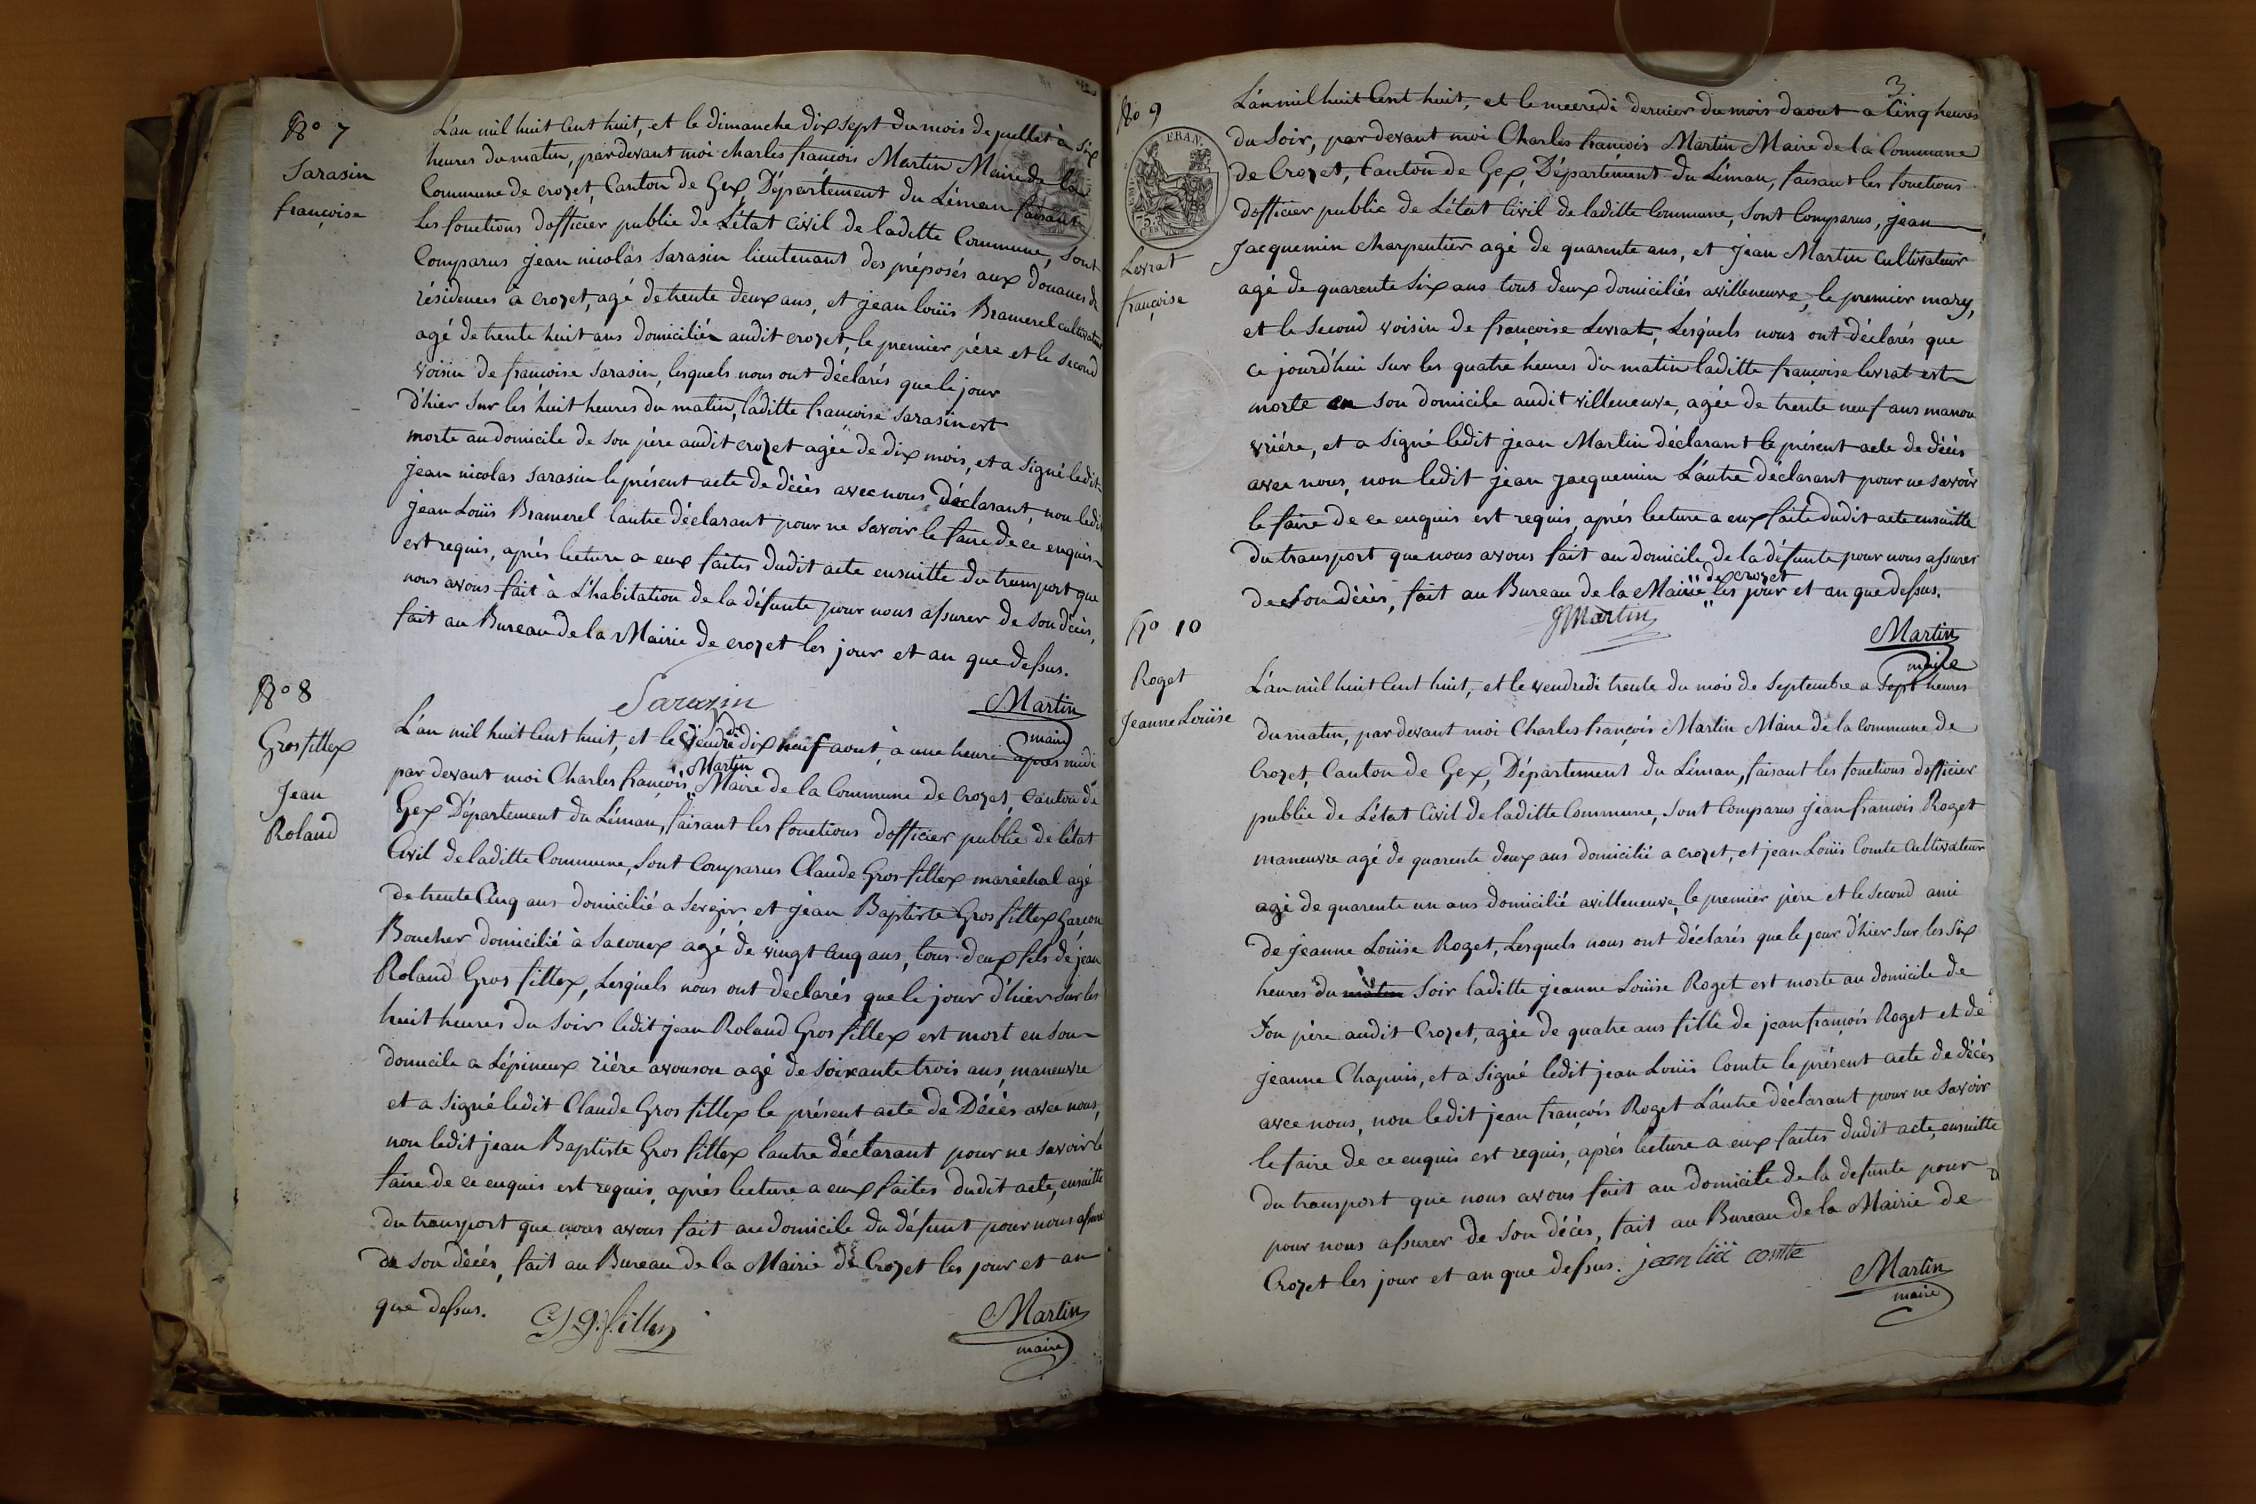 No 7
Sarasin
françoise
L'an mil huit Cent huit, et le dimanche dix sept du mois de juillet à six
heures du matin, pardevant moi charles francois Martin Maire de la
Commune de crozet, Canton de Gex, Département du Léman faisant
les fonctions d'officier public de L'état Civil de laditte Commune, sont
Comparus jean nicolas sarasin lieutenant des préposés aux douanes de
résidences à crozet, agé de trente deux ans, et jean louïs Bramerel cultivateur
agé de trente huit ans domiciliés audit crozet, le premier père et le second
voisin de francoise sarasin, lesquels nous ont déclarés que le jour
d'hier sur les huit heures du matin, laditte francoise sarasin est
morte au domicile de son père audit crozet agée de dix mois, et a signé ledit
jean nicolas sarasin le présent acte de décès avec nous déclarant, non ledit
jean Louïs Bramerel lautre déclarant pour ne savoir le faire de ce enquis
est requis, après lecture a eux faites dudit acte ensuitte du transport que
nous avons fait à L'habitation de la défunte pour nous assurer de son décès,
fait au Bureau de la Mairie de crozet les jour et an que dessus.
Sarazin
Martin
maire
No 8
Grosfillex
Jean
Roland
L'an mil huit Cent huit, et le vendredi dix neuf aout, à une heure après midi
par devant moi Charles françois Martin Maire de la Commune de Crozet, Canton de
Gex Département du Léman, faisant les fonctions d'officier public de létat
Civil de laditte Commune, sont Comparus Claude Gros fillex maréchal agé
de trente Cinq ans domicilié a sergy, et jean Baptiste Gros fillex Garcon
Boucher domicilié à saconex agé de vingt Cinq ans, tous deux fils de jean
Roland Gros fillex, Lesquels nous ont déclarés que le jour d'hier sur les
huit heures du soir ledit jean Roland Gros fillex est mort en son
domicile a Lépineux rière avouson agé de soixante trois ans, maneuvre
et a signé ledit Claude Gros fillex le présent acte de Décès avec nous,
non ledit jean Baptiste Gros fillex lautre déctarant pour ne savoir le
faire de ce enquis est requis, après lecture a eux faites dudit acte, ensuitte
du transport que nous avons fait au domicile du défunt pour nous assurer
de son décès, fait au Bureau de la Mairie de Crozet les jour et an
que dessus.
Martin
maire
3.
No 9
FRAN.
Levrat
françoise
L'an mil huit Cent huit, et le mecredi dernier du mois daout a Cinq heures
du soir, par devant moi Charles francois Martin Maire de la Commune
de Crozet, Canton de Gex, Département du Léman, faisant les fonctions
d'officier public de L'état Civil de laditte Commune, sont Comparus, jean
Jacquemin charpentier agé de quarente ans, et jean Martin Cultivateur
agé de quarente six ans tous deux domiciliés avilleneuve, le premier mary,
et le second voisin de françoise Levrat, Lesquels nous ont déclarés que
ce jourd'hui sur les quatre heures du matin laditte françoise levrat est
morte en son domicile audit villeneuve, agée de trente neuf ans manou
vrière, et a signé ledit jean Martin déclarant le présent acte de décès
avec nous, non ledit jean jacquemin L'autre déclarant pour ne savoir
le faire de ce enquis est requis, après lecture a eux faite dudit acte ensuitte
du transport que nous avons fait au domicile de la défunte pour nous assurer
de son décès, fait au Bureau de la Mairie de crozet les jour et an que dessus.
JMartin
Martin
maire
No 10
Roget
Jeanne Louïse
L'an mil huit Cent huit, et le vendredi trente du mois de septembre a sept heures
du matin, par devant moi Charles françois Martin Maire de la Commune de
Crozet, Canton de Gex, Département du Léman, faisant les fonctions d'officier
public de L'état Civil de laditte Commune, sont Comparus jean francois Roget
maneuvre agé de quarente deux ans domicilié a crozet, et jean Louïs Comte Cultivateur
agé de quarente un ans domicilié avilleneuve, le premier père et le second ami
de jeanne Louïse Roget, Lesquels nous ont déclarés que le jour d'hier sur les six
heures du matin soir laditte jeanne Louïse Roget est morte au domicile de
son père audit Crozet, agée de quatre ans fille de jean françois Roget et de
jeanne Chapuis, et a signé ledit jean Louïs Comte le présent acte de décès
avec nous, non ledit jean françois Roget L'autre déclarant pour ne savoir
le faire de ce enquis est requis, après lecture a eux faites dudit acte, ensuitte
du transport que nous avons fait au domicile de la defunte pour
pour nous assurer de son décès, fait au Bureau de la Mairie de
Crozet les jour et an que dessus. jean lüi comte
Martin
maire